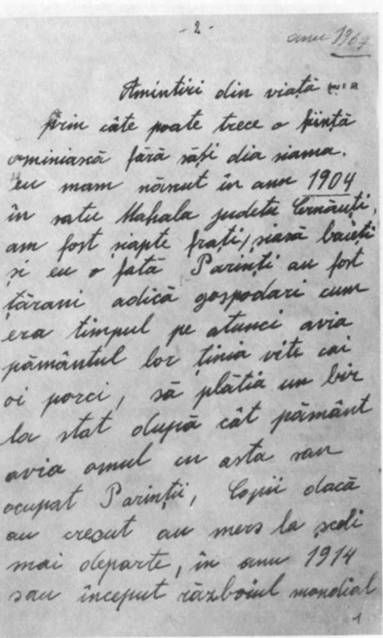 - 2 -
anu 1967
Amintiri din viață
prin câte poate trece o ființă
ominiască fără săți dia siama.
eu mam născut în anu 1904
în satu Mahala județu Cernăuți,
am fost siapte frați, siasă baieți
și eu o fată Parinți au fost
țărani adică gospodari cum
era timpul pe atunci avia
pământul lor ținia vite cai
oi porci, să plătia un bir
la stat după cât pământ
avia omul cu asta sau
ocupat Parinții, Copii dacă
au crescut au mers la școli
mai departe, în anu 1914
sau început războiul mondial
1